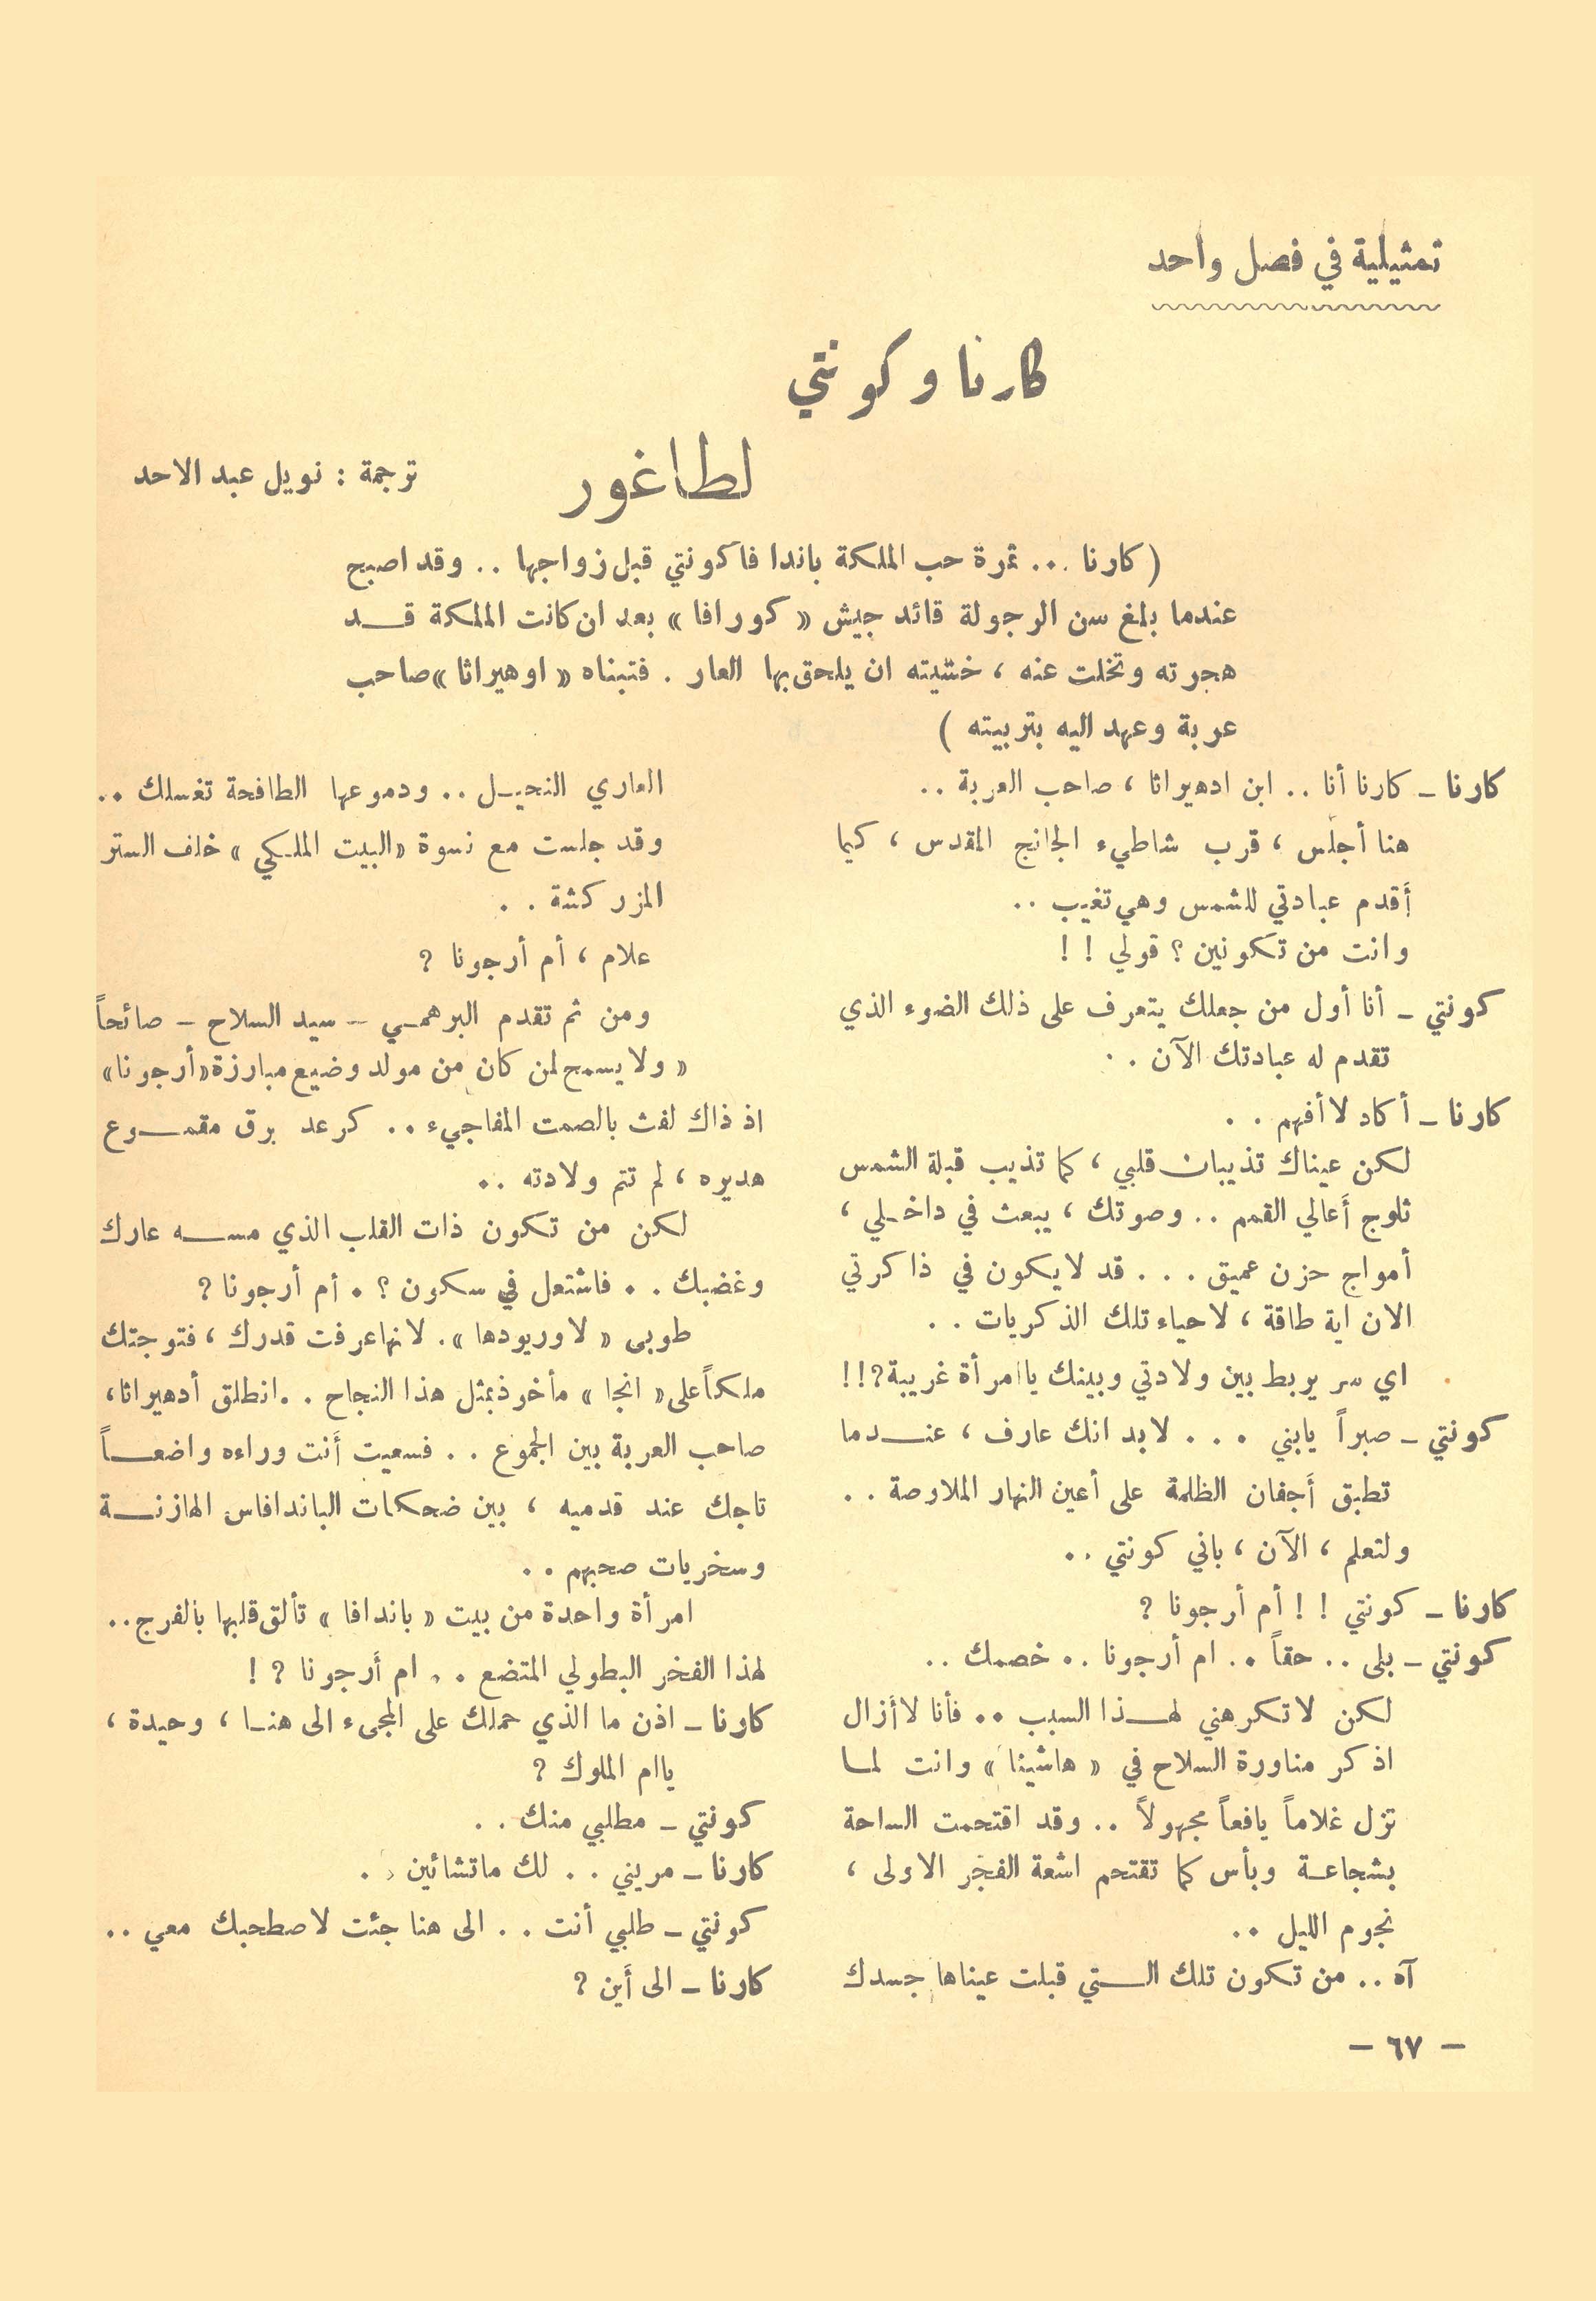 تمثيلية في فصل واحد
كارنا وكونتي
لطاغور
ترجمة : نويل عبد الاحد
( كارنا ... ثمرة حب الملكة باندا فاكونتي قبل زواجها .. وقد اصبح
عندما بلغ سن الرجولة قائد جيش « كورافا » بعد ان كانت الملكة قد
هجرته وتخلت عنه ، خشيته ان يلحق بها العار . فتبناه « اوهيراثا » صاحب
عربة وعهد اليه بتربيته )
كارنا ـ كارنا أنا .. ابن ادهيراثا ، صاحب العربة ..
هنا أجلس ، قرب شاطيء الجانج المقدس ، كيما
أقدم عبادتي للشمس وهي تغيب ..
وانت من تكونين ؟ قولي ! !
كونتي ـ أنا أول من جعلك يتعرف على ذلك الضوء الذي
تقدم له عبادتك الآن ..
كارنا ـ أكاد لا أفهم ..
لكن عيناك تذيبان قلبي ، كما تذيب قبلة الشمس
ثلوج أعالي القمم .. وصوتك ، يبعث في داخلي ،
أمواج حزن عميق ... قد لا يكون في ذاكرتي
الان اية طاقة ، لاحياء تلك الذكريات ..
اي سر يربط بين ولادتي وبينك يا امرأة غريبة ؟!!
كونتي ـ صبراً يابني ... لابد انك عارف ، عندما
تطبق أجفان الظلمة على أعين النهار الملاوصة ..
ولتعلم ، الآن ، باني كونتي ..
كارنا ـ كونتي ! ! أم أرجونا ؟
كونتي ـ بلى .. حقاً .. ام أرجونا .. خصمك ..
لكن لاتكرهني لهذا السبب .. فأنا لا أزال
اذكر مناورة السلاح في « هاشينا » وانت لما
تزل غلاماً يافعاً مجهولاً .. وقد اقتحمت الساحة
بشجاعة وبأس كما تقتحم اشعة الفجر الاولى ،
نجوم الليل ..
آه .. من تكون تلك التي قبلت عيناها جسدك
العاري النحيل .. ودموعها الطافحة تغسلك ..
وقد جلست مع نسوة « البيت الملكي » خلف الستر
المزركشة ..
علام ، أم أرجونا ؟
ومن ثم تقدم البرهمي ـ سيد السلاح ـ صائحاً
« ولا يسمح لمن كان من مولد وضيع مبارزة « أرجونا »
اذ ذاك لفت بالصمت المفاجيء .. كرعد برق مقموع
هديره ، لم تتم ولادته ..
لكن من تكون ذات القلب الذي مسه عارك
وغضبك .. فاشتعل في سكون ؟ . أم أرجونا ؟
طوبى « لاوريودها » . لانها عرفت قدرك ، فتوجتك
ملكاً على « انجا » مأخوذ بمثل هذا النجاح .. انطلق أدهيراثا ،
صاحب العربة بين الجموع .. فسعيت أنت وراءه واضعاً
تاجك عند قدميه ، بين ضحكات الباندافاس الهازئة
وسخريات صحبهم ..
امرأة واحدة من بيت « باندافا » تألق قلبها بالفرح ..
لهذا الفخر البطولي المتضع .. ام أرجونا ؟ !
كارنا ـ اذن ما الذي حملك على المجىء الى هنا ، وحيدة ،
ياام الملوك ؟
كونتي ـ مطلبي منك ..
كارنا ـ مريني .. لك ماتشائين ..
كونتي ـ طلبي أنت .. الى هنا جئت لاصطحبك معي ..
كارنا ـ الى أين ؟
ـ ٦٧ ـ